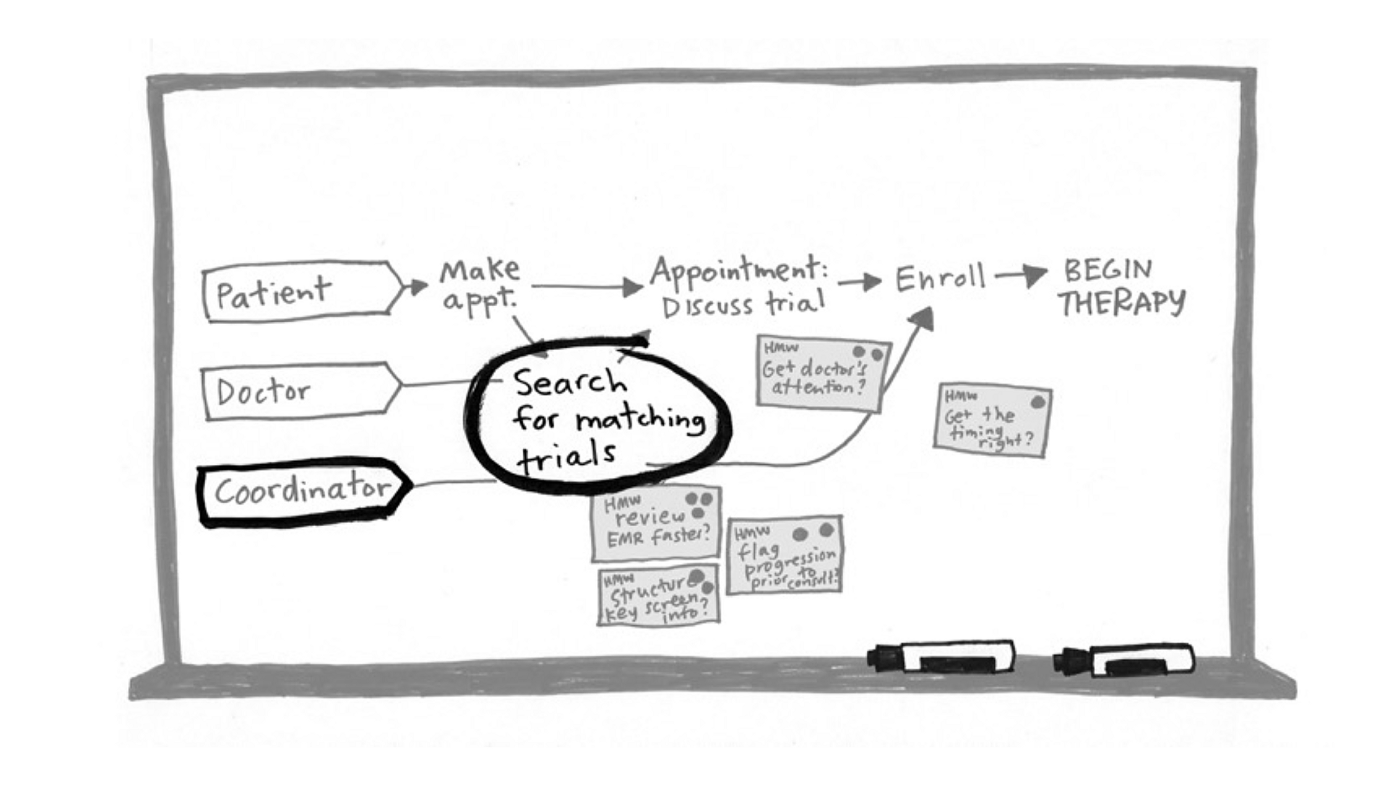 Patient
Make
appt.
Appointment:
Discuss trial
Enroll
BEGIN
THERAPY
Doctor
Search
for matching
trials
Coordinator
HMW
Get doctor's
attention?
HMW
Get the
timing
right?
HMW
review
EMR faster?
HMW
flag
progression
prior to
consult?
HMW
Structure
key screen
info?